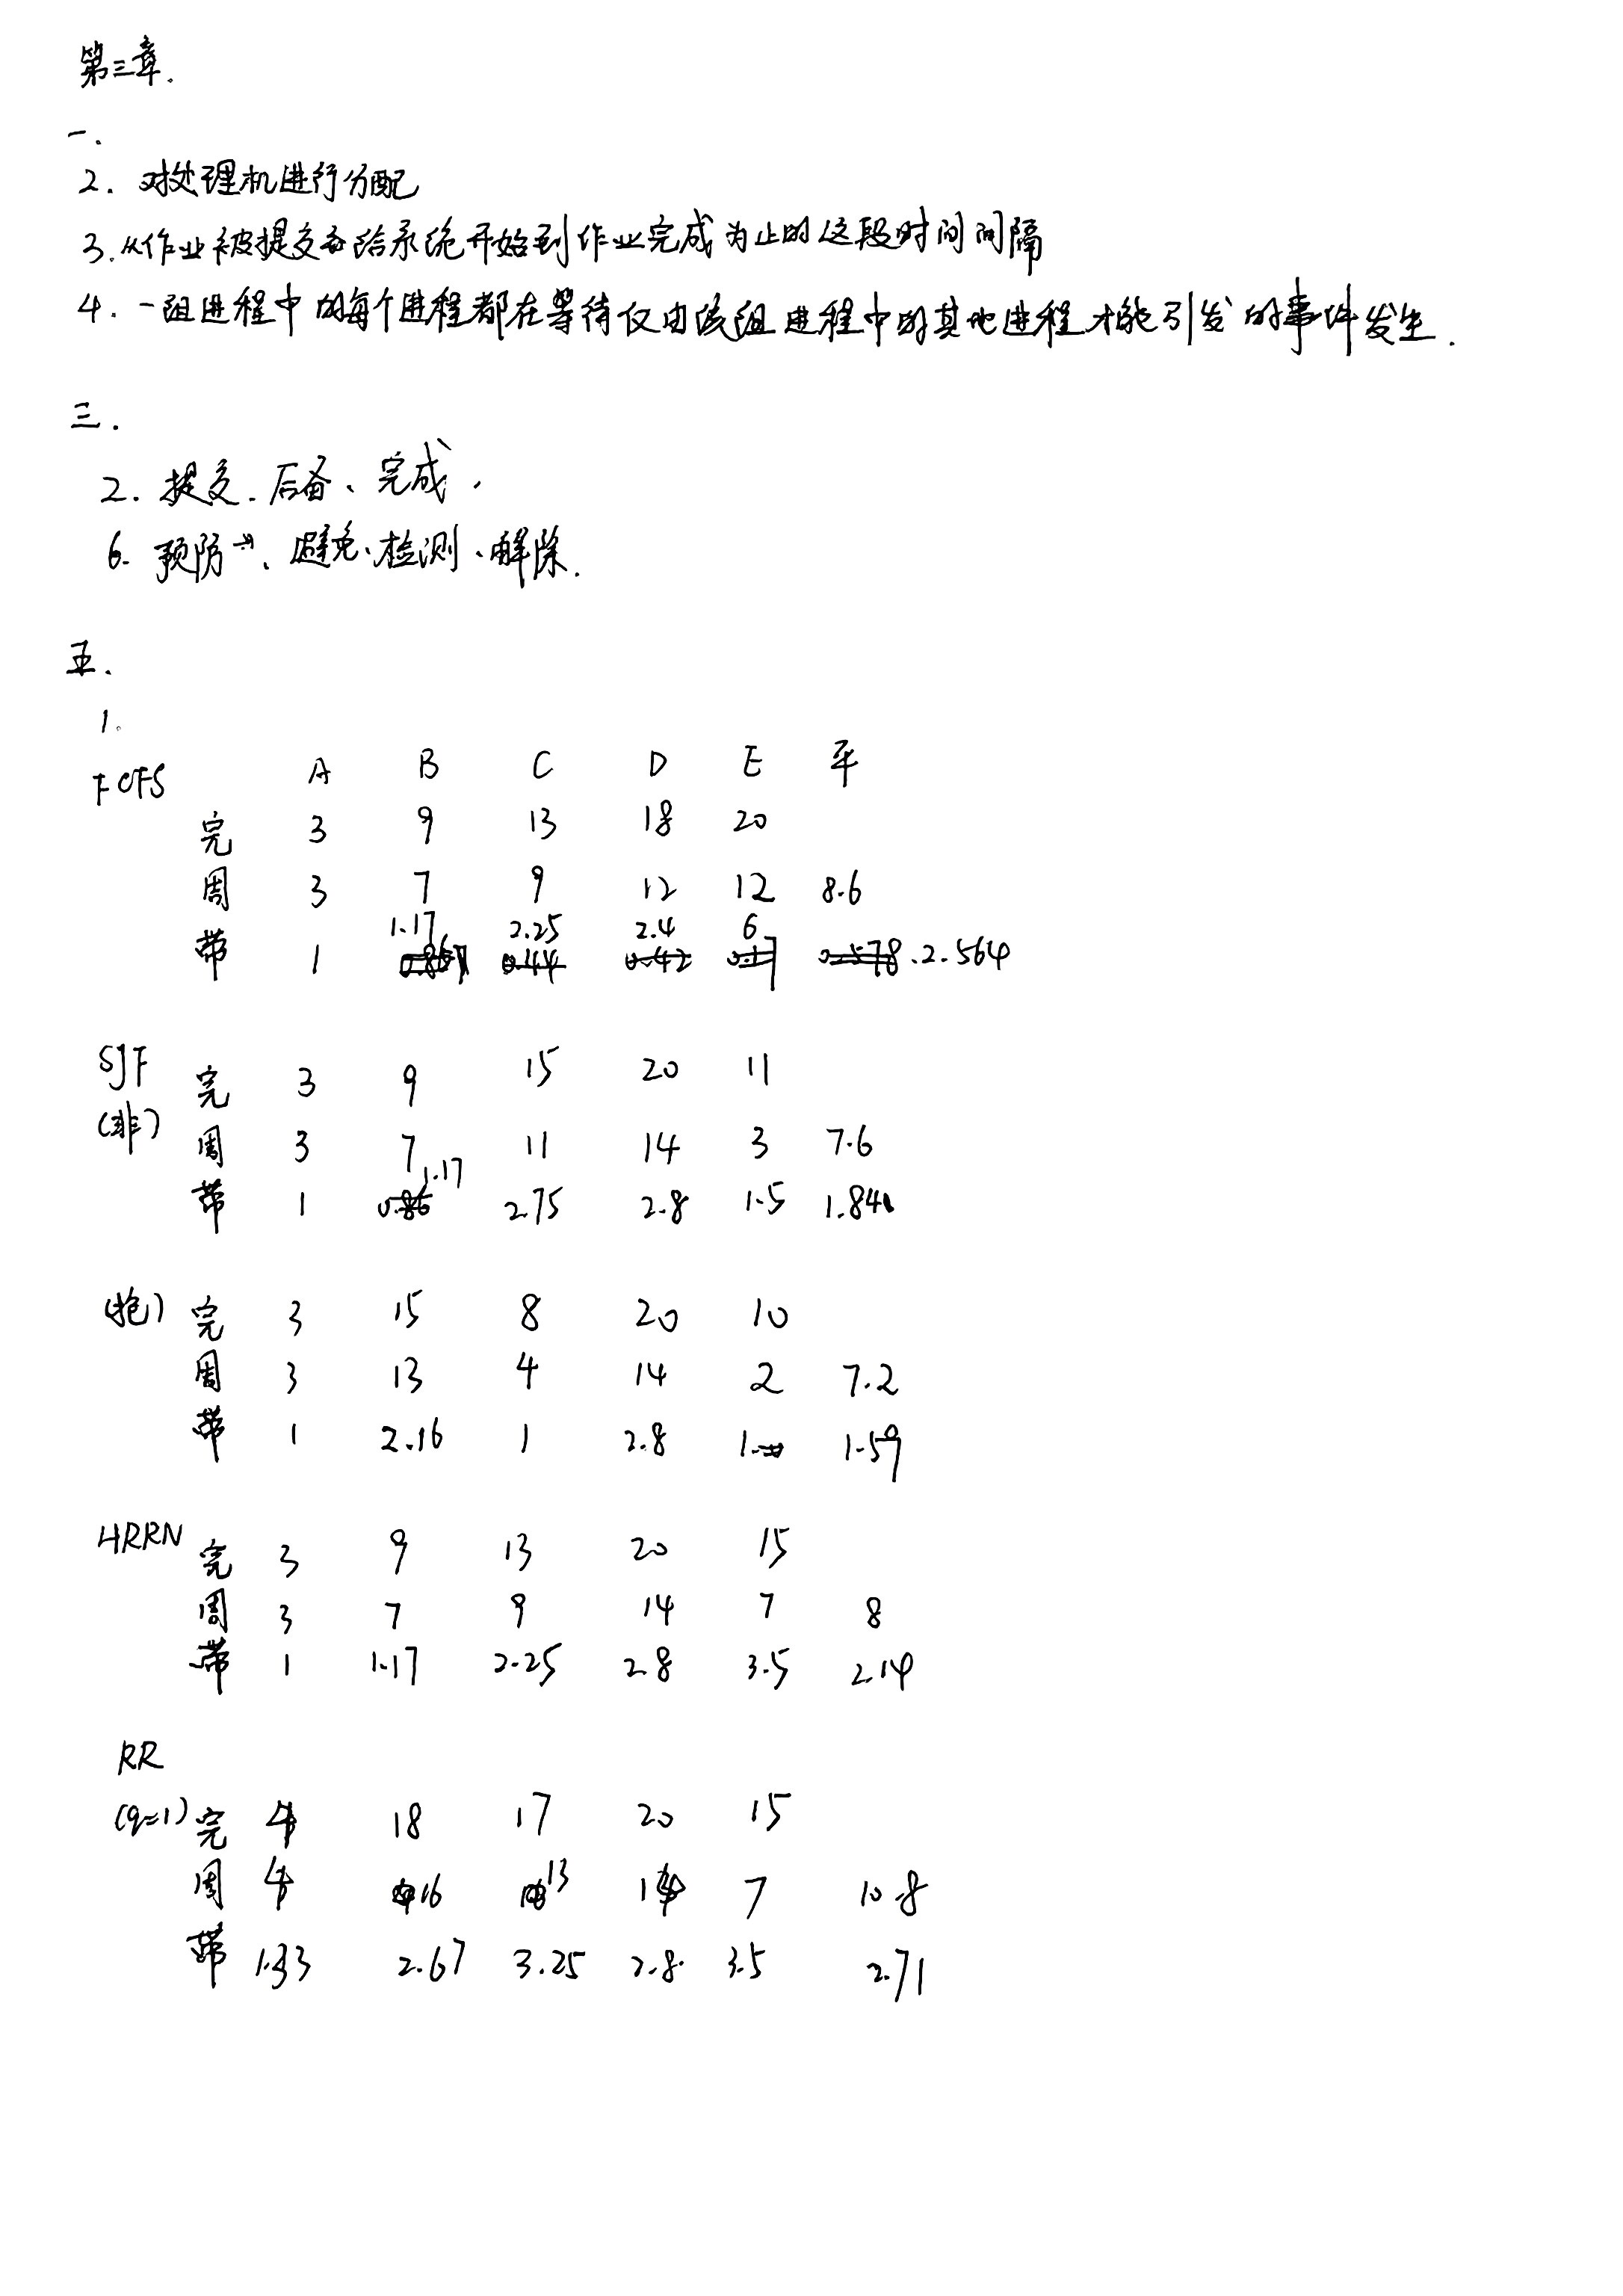 第三章.
一.
2. 对处理机进行分配
3.从作业被提交给系统开始到作业完成为止的这段时间间隔
4. 一组进程中的每个进程都在等待仅由该组进程中的其他进程才能引发的事件发生.
三.
2. 提交、后备、完成.
6. 预防、避免、检测、解除.
五.
1.
FCFS A B C D E 平
完 3 9 13 18 20
周 3 7 9 12 12 8.6
带 1 1.17 2.25 2.4 6 2.564
SJF 完 3 9 15 20 11
(非) 周 3 7 11 14 3 7.6
带 1 1.17 2.75 2.8 1.5 1.84
(抢) 完 3 15 8 20 10
周 3 13 4 14 2 7.2
带 1 2.16 1 2.8 1 1.59
HRRN 完 3 9 13 20 15
周 3 7 9 14 7 8
带 1 1.17 2.25 2.8 3.5 2.14
RR
(q=1) 完 4 18 17 20 15
周 4 16 13 14 7 10.8
带 1.33 2.67 3.25 2.8 3.5 2.71